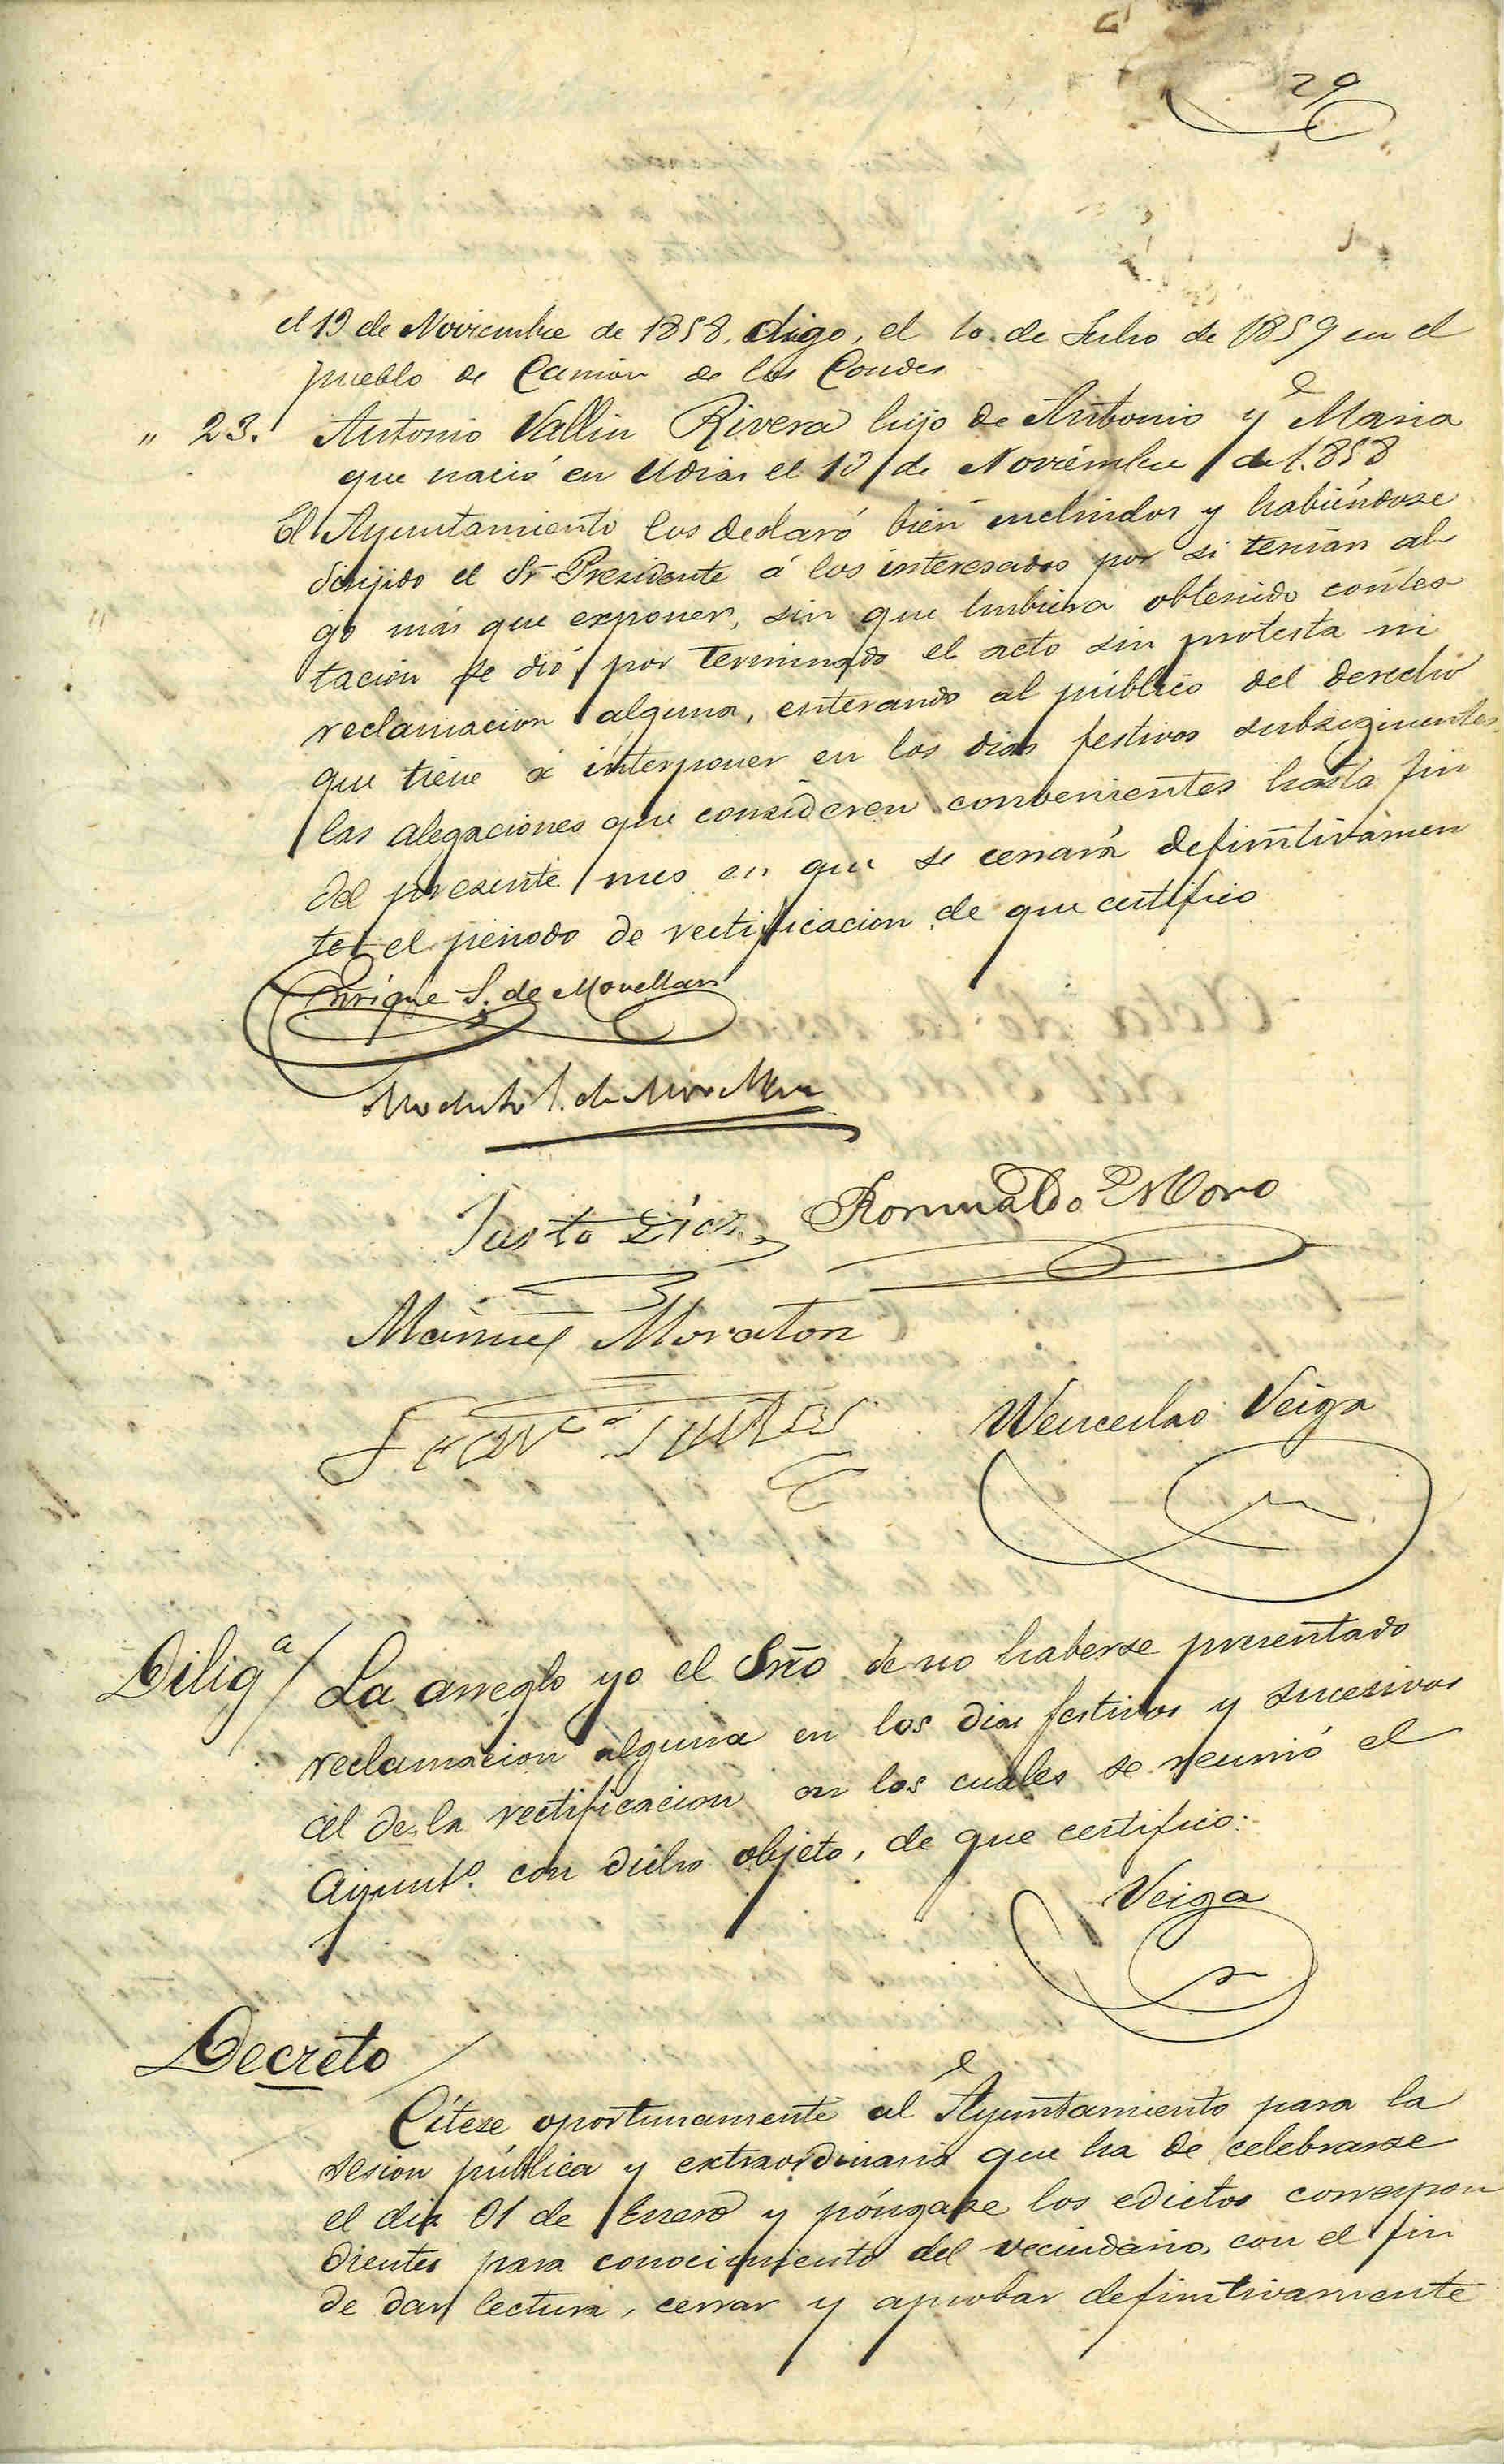 29
el 19 de Noviembre de 1858, digo, el 10 de Julio de 1859 en el
pueblo de Carrion de los Condes
" 23. Antonio Vallin Rivera hijo de Antonio y Maria
que nació en Udias el 19 de Noviembre de 1.858
El Ayuntamiento los declaró bien incluidos y habiéndose
dirijido el Sr. Presidente á los interesados por si tenian al
go más que exponer, sin que hubiera obtenido contes
tacion se dió por terminado el acto sin protesta ni
reclamacion alguna, enterando al público del derecho
que tiene á interponer en los dias festivos subsiguientes
las alegaciones que consideren convenientes hasta fin
del presente mes en que se cerrará definitivamen
te el periodo de rectificacion de que certifico
Enrique S. de Movellan
Modesto S. de Movellan
Justo Diaz Romualdo Moro
Manuel Moraton
Wenceslao Veiga
Franco
Diliga/ La arreglo yo el Srio de no haberse presentado
reclamacion alguna en los dias festivos y sucesivos
al de la rectificacion en los cuales se reunió el
Ayunto. con dicho objeto, de que certifico.
Veiga
Decreto/
Cítese oportunamente al Ayuntamiento para la
sesion pública y extraordinaria que ha de celebrarse
el dia 31 de Enero y póngase los edictos correspon
dientes para conocimiento del vecindario, con el fin
de dar lectura, cerrar y aprobar definitivamente